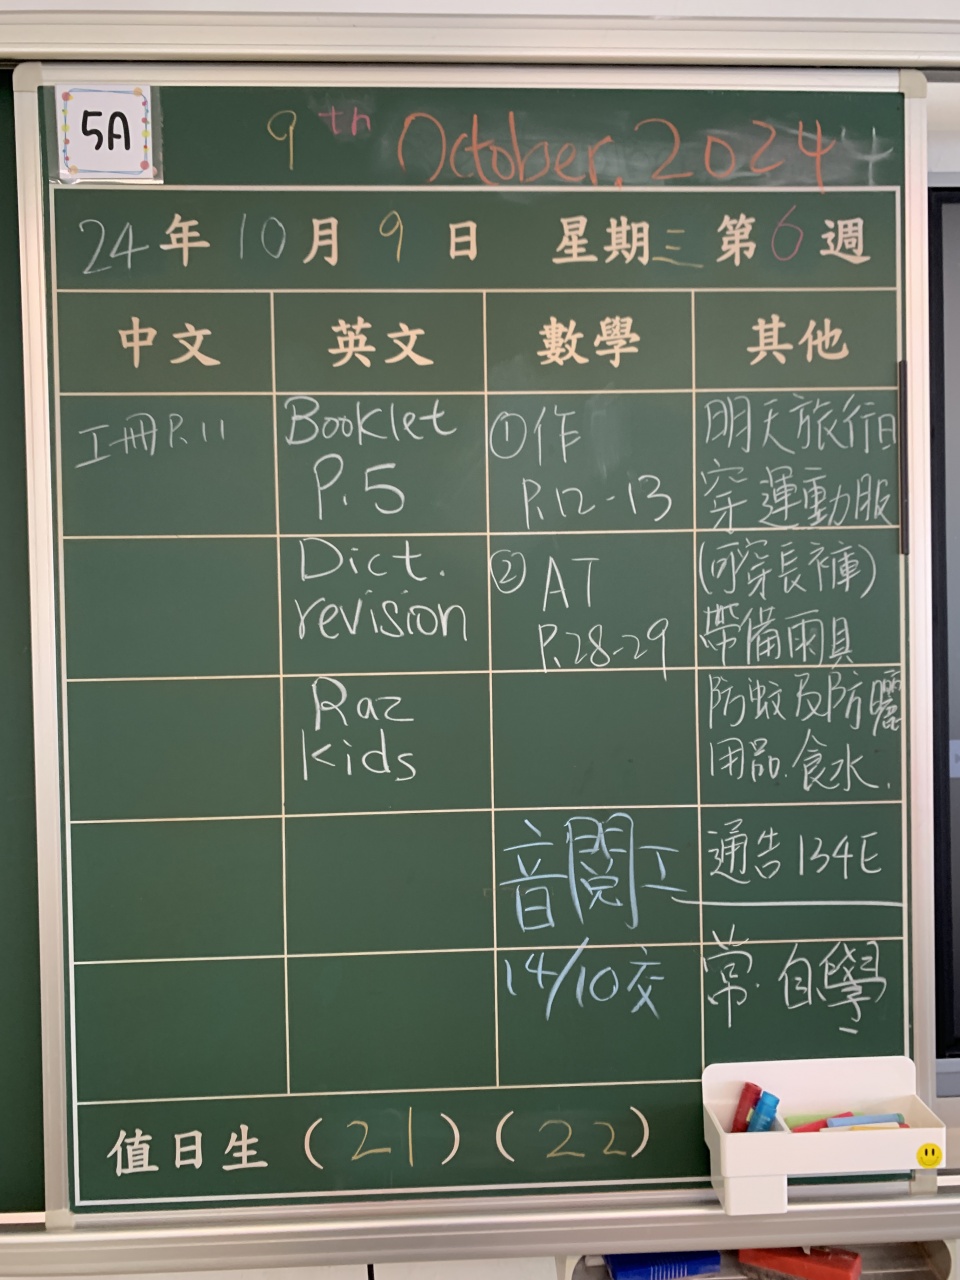 5A
9th October, 2024
24年10月9日 星期三 第6週
中文 英文 數學 其他
工冊P.11
Booklet
P.5
Dict.
revision
Raz
kids
①作
P.12-13
② AT
P.28-29
音閱工
14/10交
明天旅行日
穿運動服
(可穿長褲)
帶備雨具
防蚊及防曬
用品.食水.
通告134E
常.自學
值日生(21)(22)